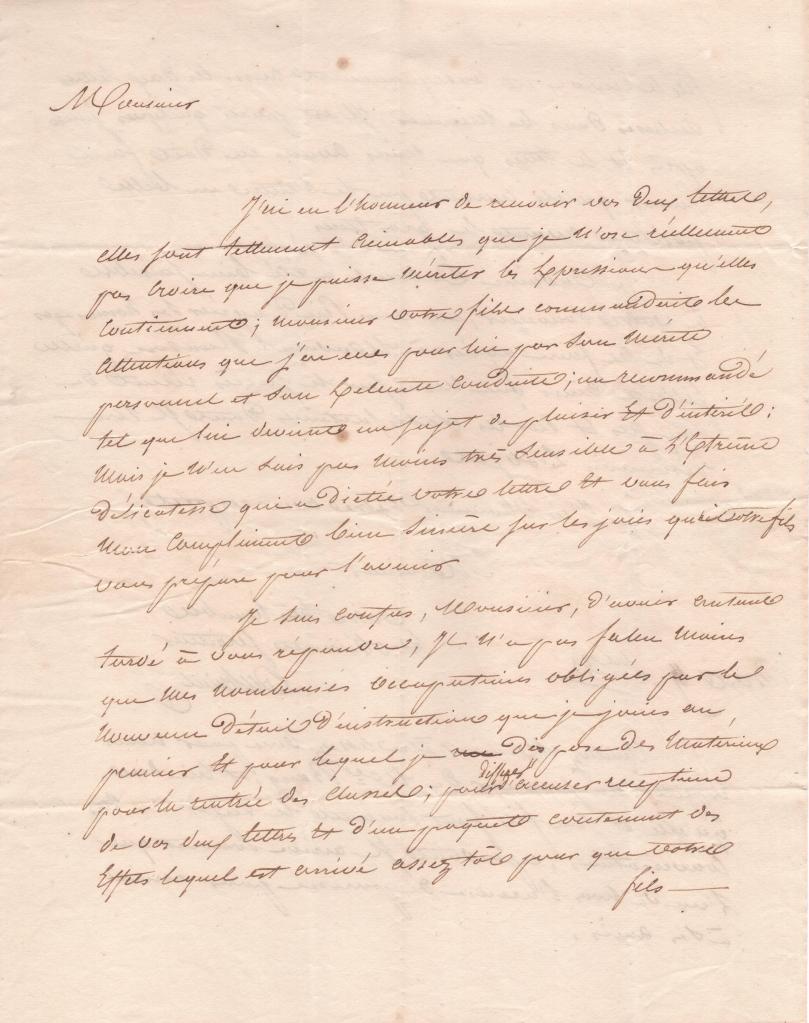 Monsieur
J'ai eu l'honneur de recevoir vos deux lettres,
elles sont tellement aimables que je n'ose réellement
pas croire que je puisse mériter les expressions qu'elles
contiennent; monsieur votre fils commandait les
attentions que j'ai eues pour lui par son mérite
personnel et son excellente conduite; un recommandé
tel que lui devient un sujet de plaisir et d'intérêt;
mais je n'en suis pas moins très sensible à l'extrême
délicatesse qui a dictée votre lettre et vous fais
mon compliment bien sincère sur les joies que votre fils
vous prépare pour l'avenir
Je suis confus, Monsieur, d'avoir autant
tardé à vous répondre, il n'a pas fallu moins
que mes nombreuses occupations obligées par le
nouveau détail d'instruction que je joins au
premier et pour lequel je dispose des matériaux
pour la rentrée des classes; pour différer d'accuser réception
de vos deux lettres et d'un paquet contenant des
effets lequel est arrivé assez tôt pour que votre
fils